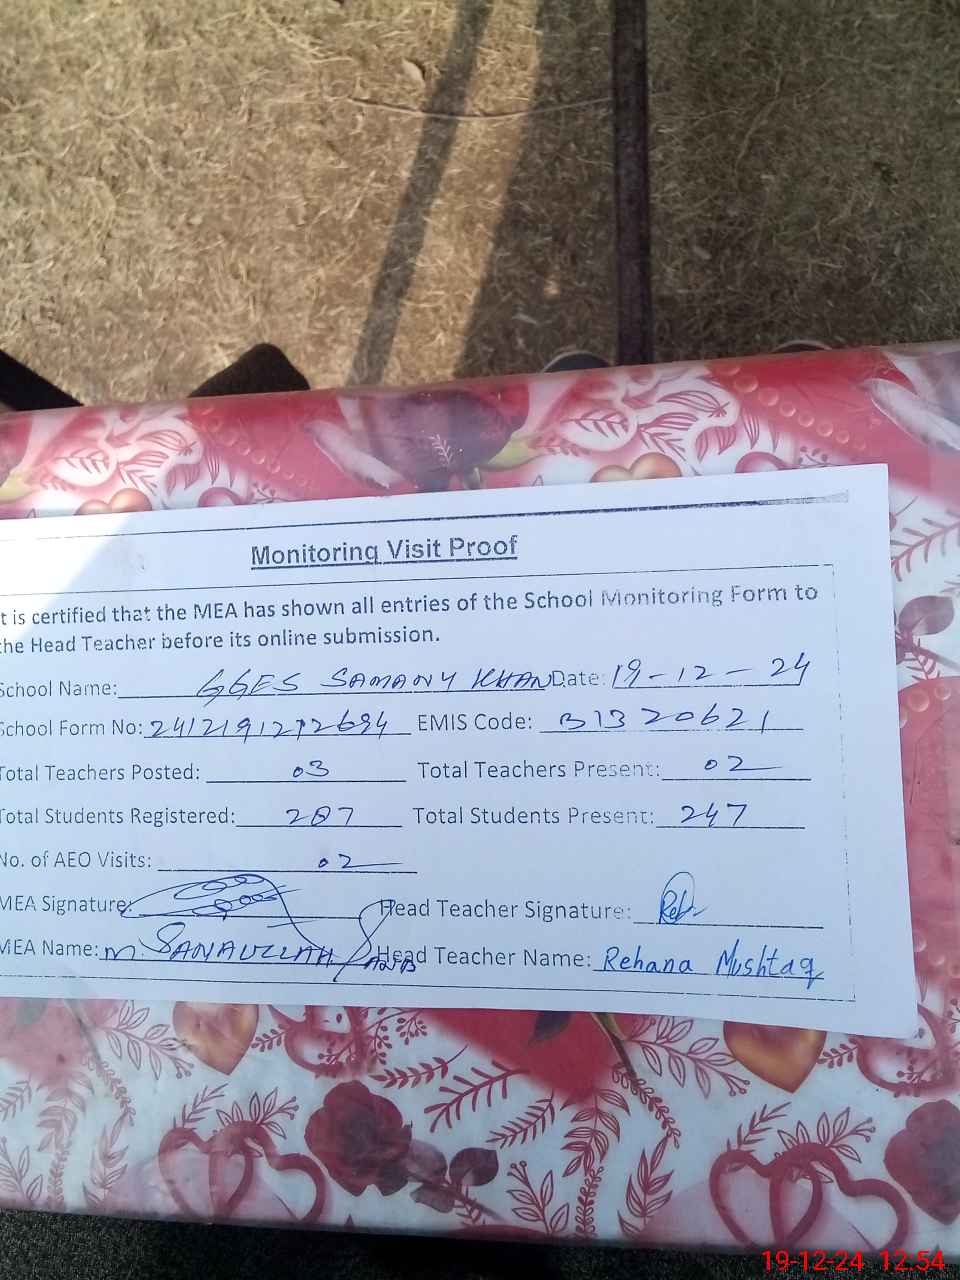 Monitoring Visit Proof
t is certified that the MEA has shown all entries of the School Monitoring Form to
the Head Teacher before its online submission.
School Name: GGES SAMANY KHAN Date: 19-12-24
School Form No: EMIS Code: 31320621
Total Teachers Posted: 03 Total Teachers Present: 02
Total Students Registered: 287 Total Students Present: 247
No. of AEO Visits: 02
MEA Signature: Head Teacher Signature:
MEA Name: M. SANAULLAH Head Teacher Name: Rehana Mushtaq
19-12-24 12:54